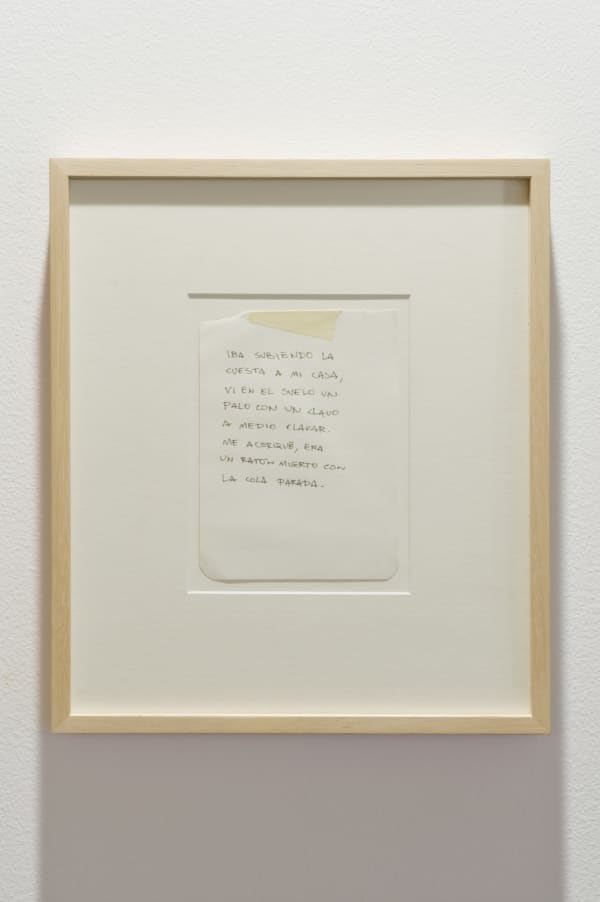 IBA SUBIENDO LA
CUESTA A MI CASA,
VI EN EL SUELO UN
PALO CON UN CLAVO
A MEDIO CLAVAR.
ME ACERQUÉ, ERA
UN RATÓN MUERTO CON
LA COLA PARADA.